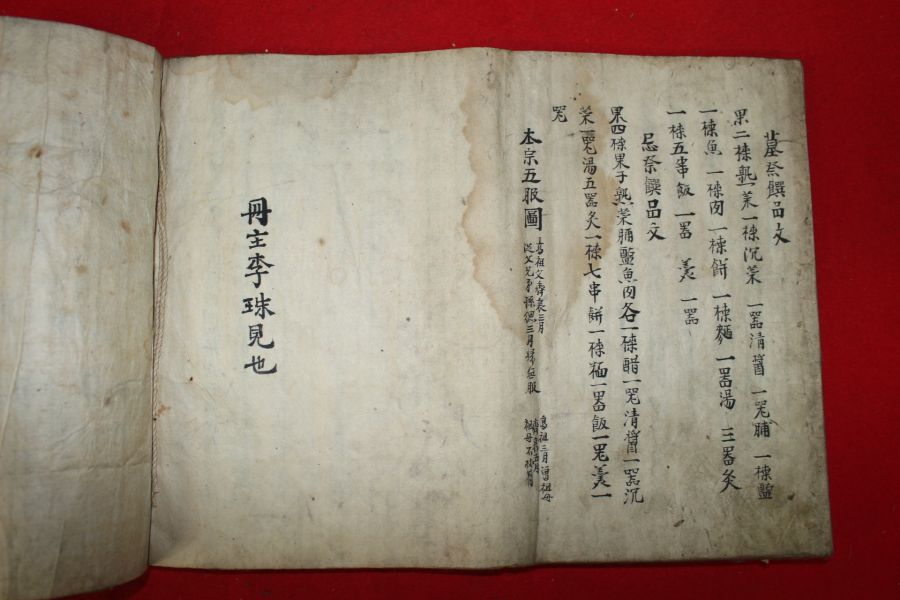 墓祭饌品文
果二楪熟菜一楪沉菜 一器清醬 一器脯 一楪醢
一楪魚 一楪肉 一楪餠 一楪麵 一器湯 三器炙
一楪五串飯 一器 羹 一器
忌祭饌品文
果四楪果子熟菜脯醢魚肉各一楪醋一器清醬一器沉
菜一器湯五器炙一楪七串餠一楪麵一器飯一器羹一
器
本宗五服圖
高祖父齊衰三月
高祖三月曾祖母
冊主李珠見也